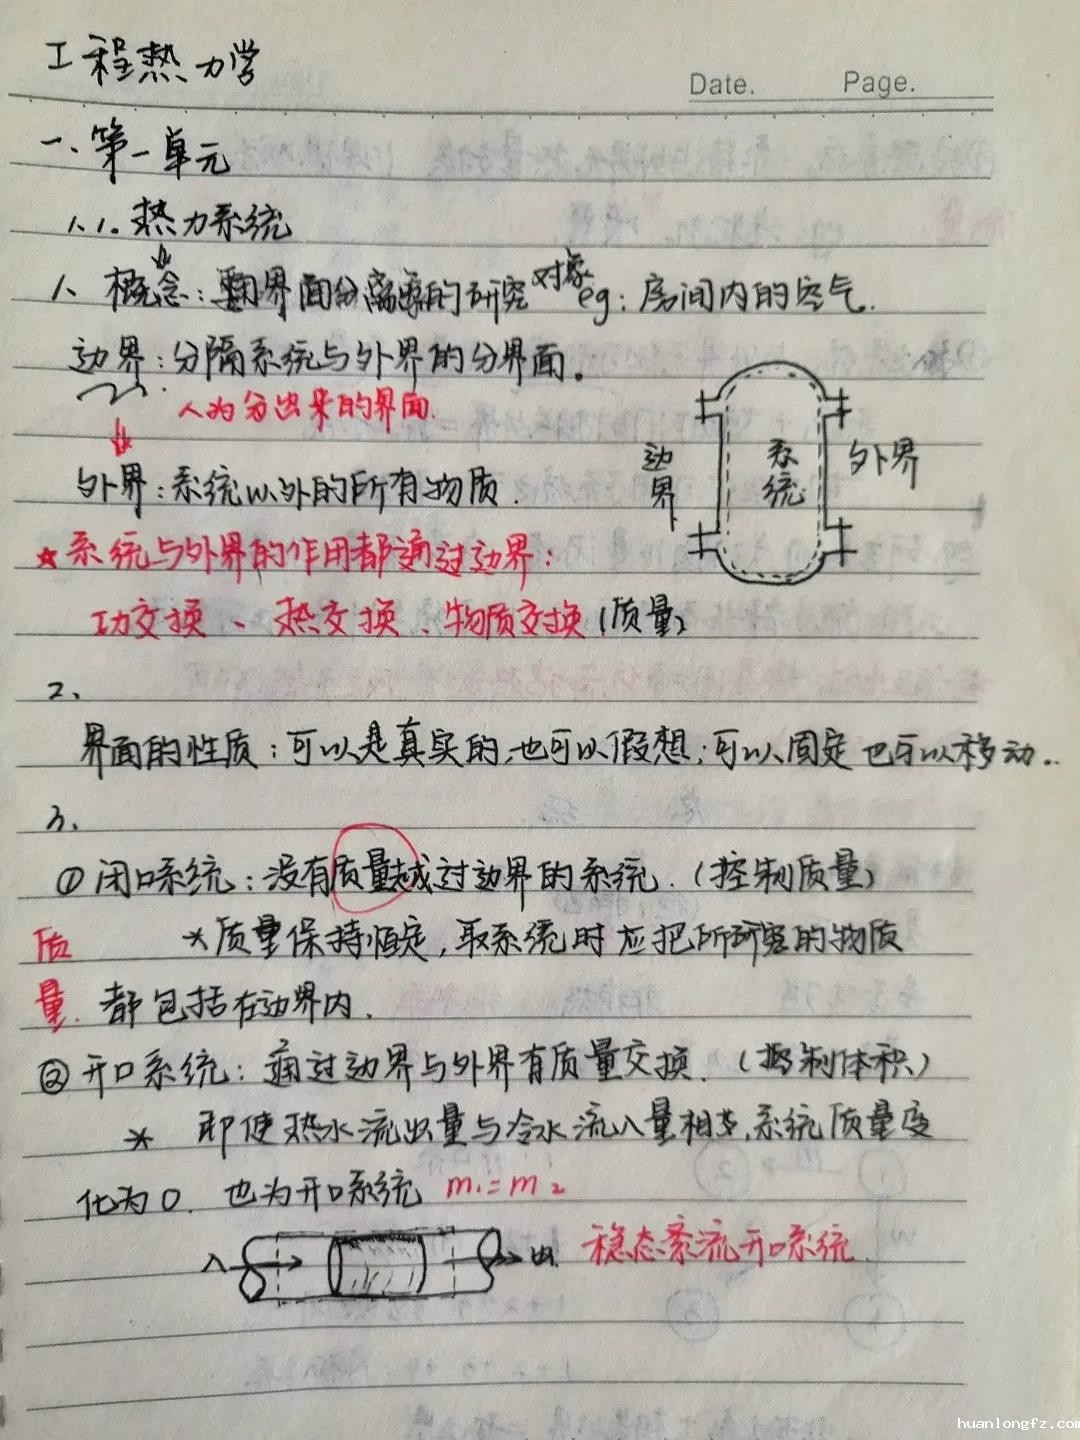 工程热力学
Date. Page.
一、第一单元
1.1. 热力系统
1、概念：界面分离的研究对象 eg：房间内的空气.
边界：分隔系统与外界的分界面。
人为分出来的界面.
外界：系统以外的所有物质.
边界 系统 外界
*系统与外界的作用都通过边界：
功交换、热交换、物质交换（质量）
2、
界面的性质：可以是真实的，也可以假想；可以固定也可以移动..
3、
①闭口系统：没有质量越过边界的系统.（控制质量）
质量. *质量保持恒定，取系统时应把所研究的物质
都包括在边界内.
②开口系统：通过边界与外界有质量交换.（控制体积）
* 即使热水流出量与冷水流入量相等，系统质量变
化为0. 也为开口系统 m₁=m₂
入 出 稳态流开口系统.
huanlongfz.com